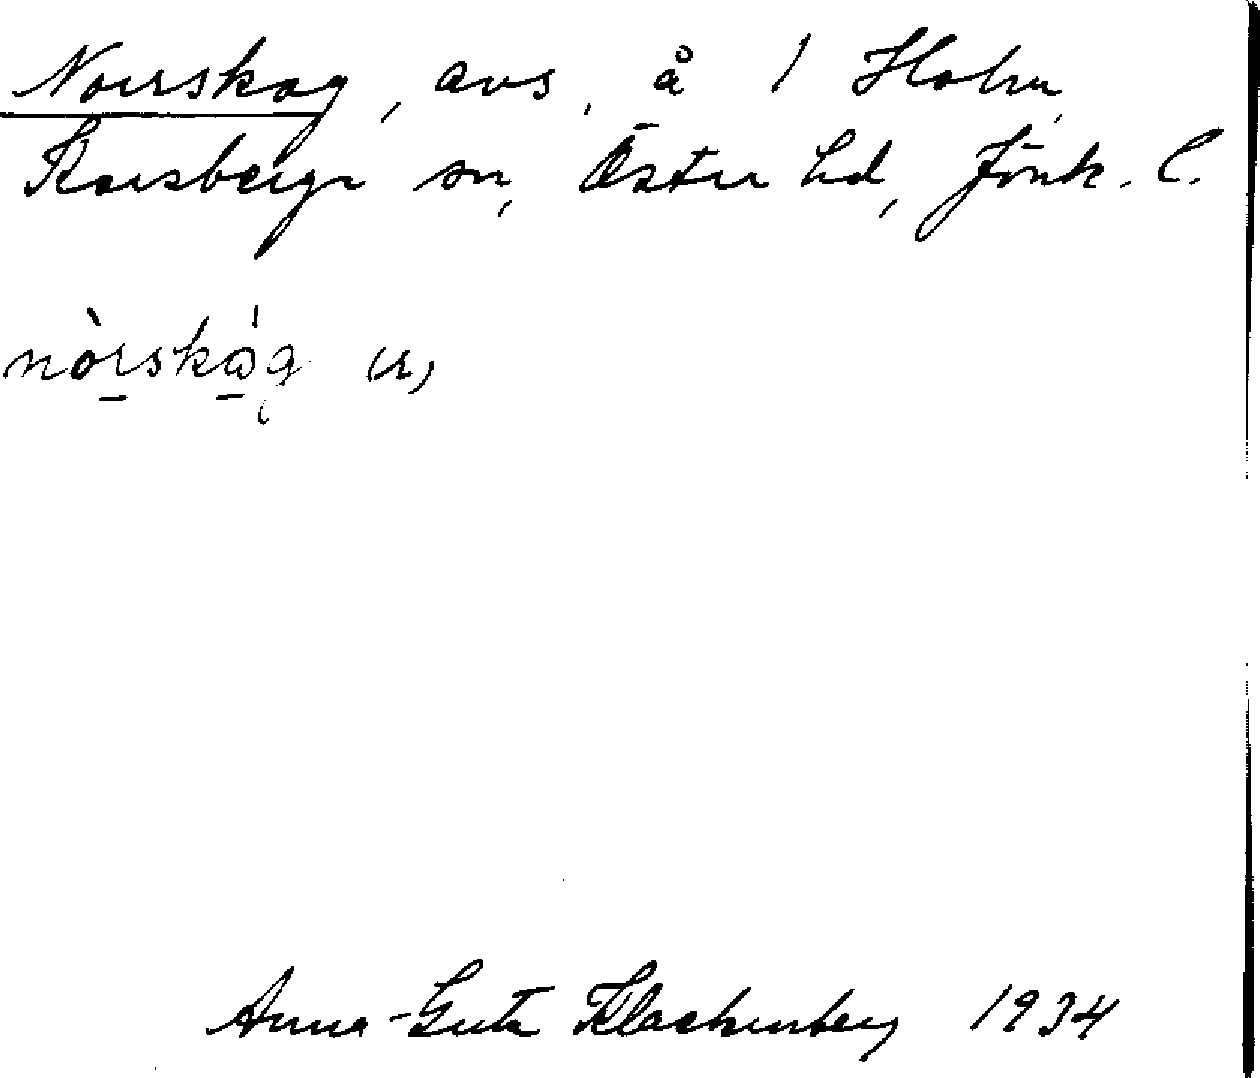 Norrskog, avs. å 1 Holm,
Korsberga sn, Östra hd, Jönk. l.
nòrskóg
Anna-Greta Klackenberg 1934